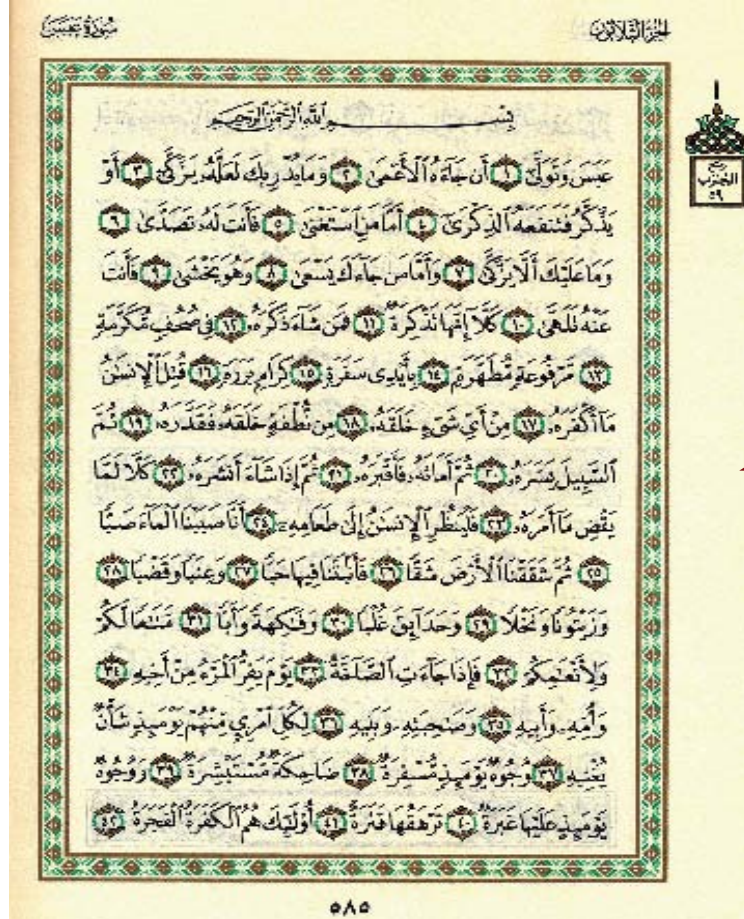 الجزء الثلاثون
سورة عبس
بِسْمِ اللَّهِ الرَّحْمَٰنِ الرَّحِيمِ
١
ربع
الحزب
٥٩
عَبَسَ وَتَوَلَّىٰ ١ أَن جَاءَهُ الْأَعْمَىٰ ٢ وَمَا يُدْرِيكَ لَعَلَّهُ يَزَّكَّىٰ ٣ أَوْ
يَذَّكَّرُ فَتَنفَعَهُ الذِّكْرَىٰ ٤ أَمَّا مَنِ اسْتَغْنَىٰ ٥ فَأَنتَ لَهُ تَصَدَّىٰ ٦
وَمَا عَلَيْكَ أَلَّا يَزَّكَّىٰ ٧ وَأَمَّا مَن جَاءَكَ يَسْعَىٰ ٨ وَهُوَ يَخْشَىٰ ٩ فَأَنتَ
عَنْهُ تَلَهَّىٰ ١٠ كَلَّا إِنَّهَا تَذْكِرَةٌ ١١ فَمَن شَاءَ ذَكَرَهُ ١٢ فِي صُحُفٍ مُّكَرَّمَةٍ
١٣ مَّرْفُوعَةٍ مُّطَهَّرَةٍ ١٤ بِأَيْدِي سَفَرَةٍ ١٥ كِرَامٍ بَرَرَةٍ ١٦ قُتِلَ الْإِنسَانُ
مَا أَكْفَرَهُ ١٧ مِنْ أَيِّ شَيْءٍ خَلَقَهُ ١٨ مِن نُّطْفَةٍ خَلَقَهُ فَقَدَّرَهُ ١٩ ثُمَّ
السَّبِيلَ يَسَّرَهُ ٢٠ ثُمَّ أَمَاتَهُ فَأَقْبَرَهُ ٢١ ثُمَّ إِذَا شَاءَ أَنشَرَهُ ٢٢ كَلَّا لَمَّا
يَقْضِ مَا أَمَرَهُ ٢٣ فَلْيَنظُرِ الْإِنسَانُ إِلَىٰ طَعَامِهِ ٢٤ أَنَّا صَبَبْنَا الْمَاءَ صَبًّا
٢٥ ثُمَّ شَقَقْنَا الْأَرْضَ شَقًّا ٢٦ فَأَنبَتْنَا فِيهَا حَبًّا ٢٧ وَعِنَبًا وَقَضْبًا ٢٨
وَزَيْتُونًا وَنَخْلًا ٢٩ وَحَدَائِقَ غُلْبًا ٣٠ وَفَاكِهَةً وَأَبًّا ٣١ مَّتَاعًا لَّكُمْ
وَلِأَنْعَامِكُمْ ٣٢ فَإِذَا جَاءَتِ الصَّاخَّةُ ٣٣ يَوْمَ يَفِرُّ الْمَرْءُ مِنْ أَخِيهِ ٣٤
وَأُمِّهِ وَأَبِيهِ ٣٥ وَصَاحِبَتِهِ وَبَنِيهِ ٣٦ لِكُلِّ امْرِئٍ مِّنْهُمْ يَوْمَئِذٍ شَأْنٌ
يُغْنِيهِ ٣٧ وُجُوهٌ يَوْمَئِذٍ مُّسْفِرَةٌ ٣٨ ضَاحِكَةٌ مُّسْتَبْشِرَةٌ ٣٩ وَوُجُوهٌ
يَوْمَئِذٍ عَلَيْهَا غَبَرَةٌ ٤٠ تَرْهَقُهَا قَتَرَةٌ ٤١ أُولَٰئِكَ هُمُ الْكَفَرَةُ الْفَجَرَةُ ٤٢
٥٨٥